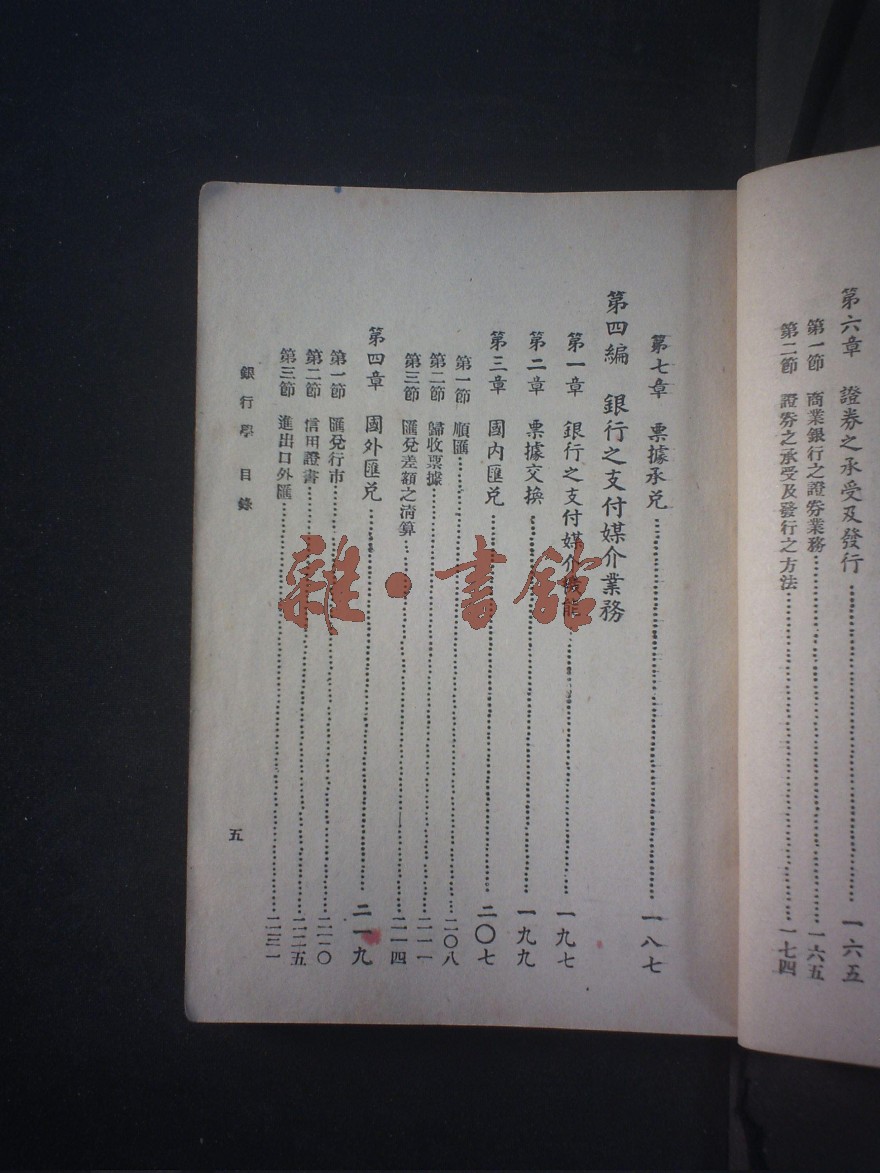 第六章　證券之承受及發行……一六五
第一節　商業銀行之證券業務……一六五
第二節　證券之承受及發行之方法……一七四
第七章　票據承兑……一八七
第四編　銀行之支付媒介業務
第一章　銀行之支付媒介機能……一九七
第二章　票據交換……一九九
第三章　國內匯兑……二〇七
第一節　順匯……二〇八
第二節　歸收票據……二一一
第三節　匯兌差額之清算……二一四
第四章　國外匯兑……二一九
第一節　匯兌行市……二二〇
第二節　信用證書……二二五
第三節　進出口外匯……二三一
銀行學　目錄
五
雜·書館